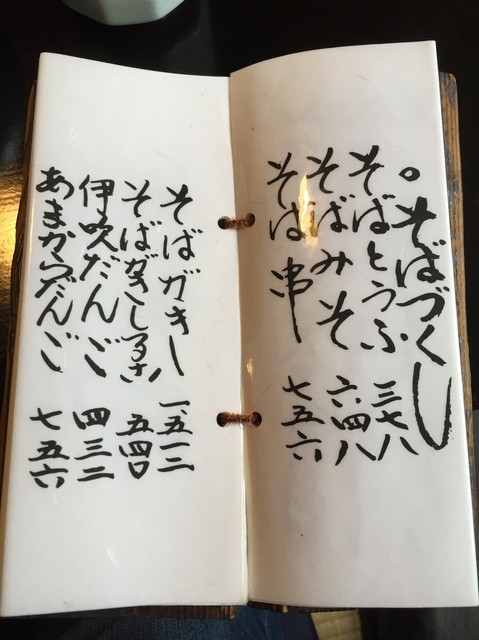 。そばづくし
そばとうふ 三七八
そばみそ 六四八
そば串 七五六
そばがき 一、五一二
そばがきしるこ 五四〇
伊吹だんご 四三二
あまからだんご 七五六